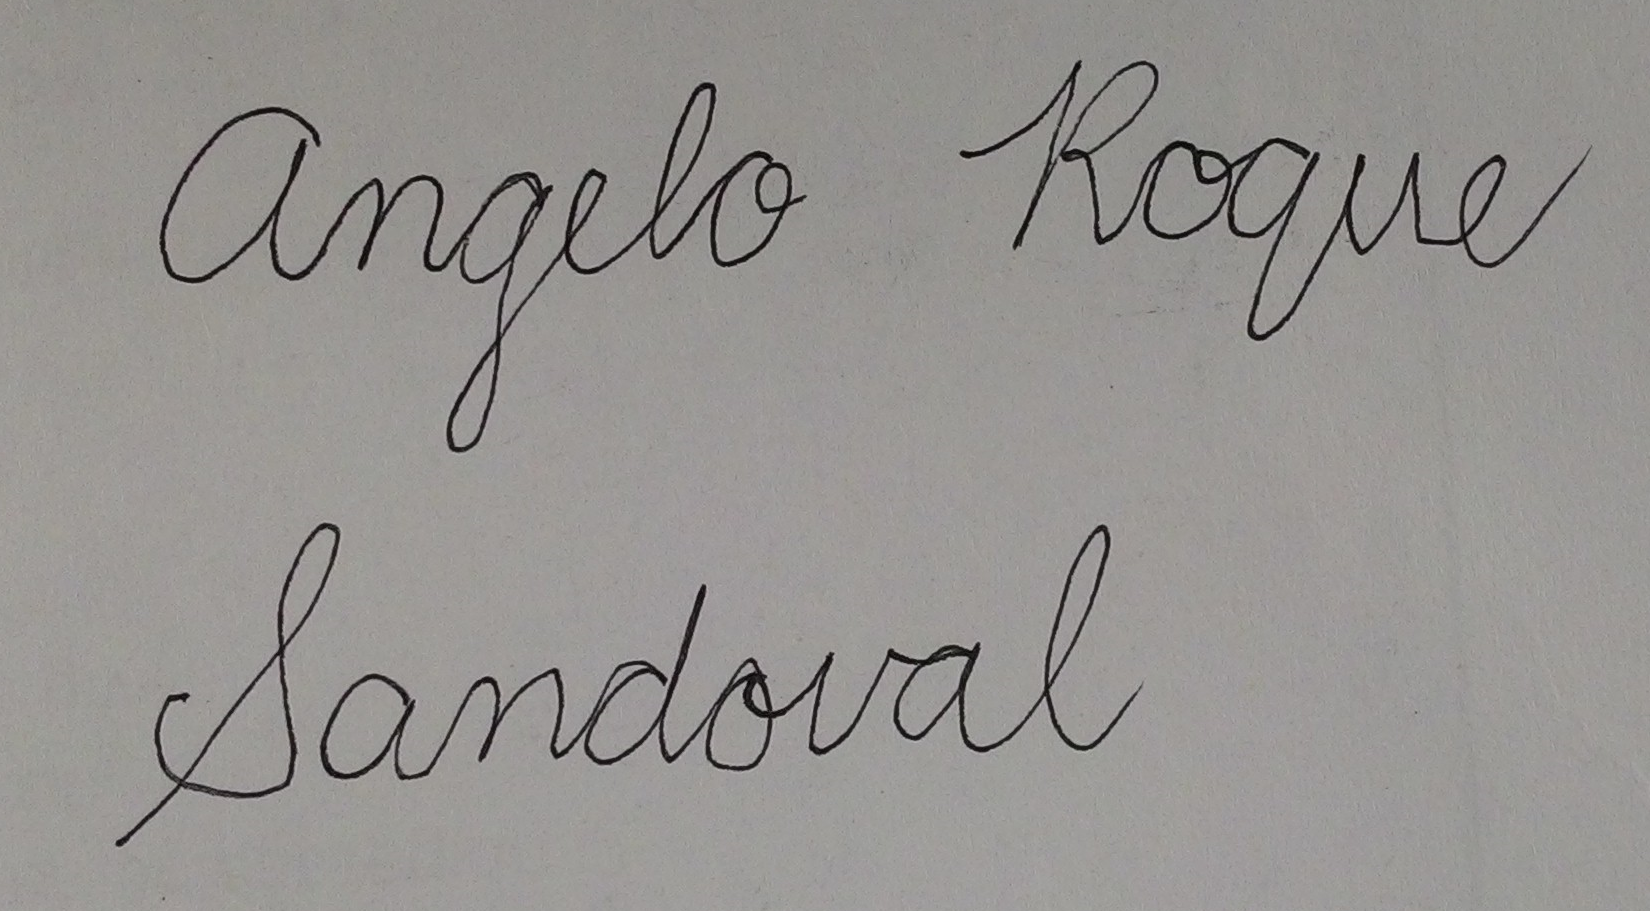 Angelo Roque
Sandoval